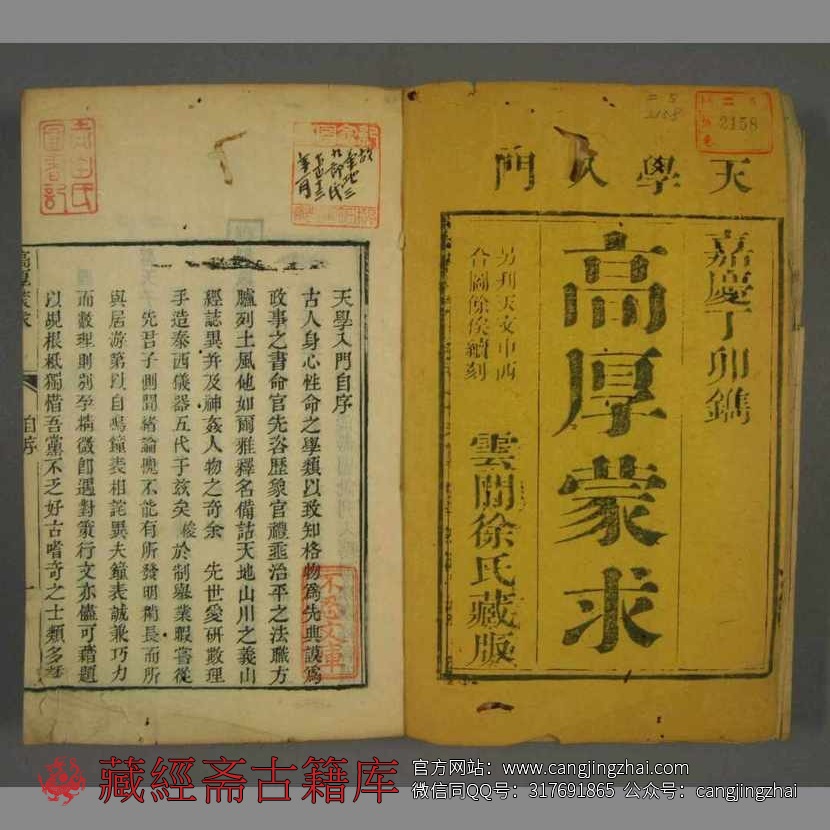 天學入門
嘉慶丁卯鐫
高厚蒙求
另刊天文中西
合圖餘俟續刻
雲間徐氏藏版
2158
2158
天學入門自序
古人身心性命之學類以致知格物為先典謨為
政事之書命官先咨歷象官禮垂治平之法職方
臚列土風他如爾雅釋名備詁天地山川之義山
經誌異并及神姦人物之奇余 先世愛研數理
手造泰西儀器五代于玆矣 於制舉業暇嘗從
先君子側聞緒論愧不能有所發明稍長而所
與居游第以自鳴鐘表相詫異夫鐘表誠兼巧力
而數理則剖孕精微即遇對策行文亦儘可藉題
以覘根柢獨惜吾黨不乏好古嗜奇之士類多
高厚蒙求
自序
不忍文庫
藏經斋古籍库
官方网站：www.cangjingzhai.com
微信同QQ号：317691865 公众号：cangjingzhai